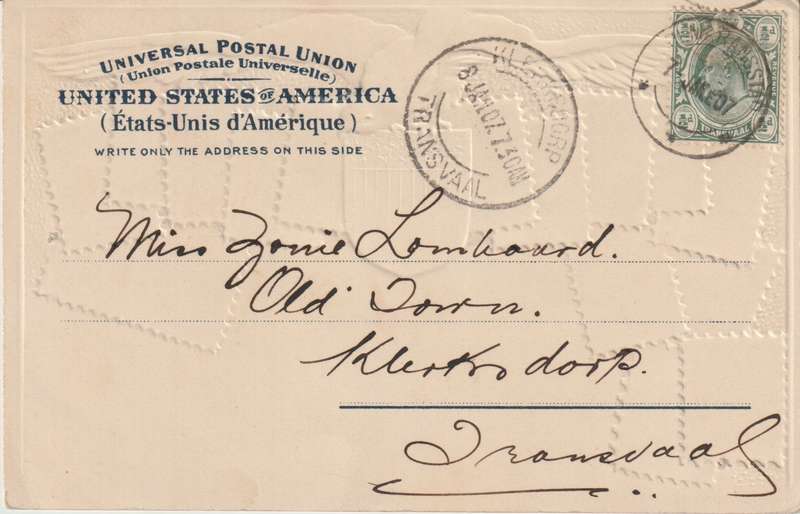 UNIVERSAL POSTAL UNION
(Union Postale Universelle)
UNITED STATES OF AMERICA
(États-Unis d'Amérique)
WRITE ONLY THE ADDRESS ON THIS SIDE
KLERKSDORP
8 JAN 07 7.40AM
TRANSVAAL
TRANSVAAL
Miss Zonie Lombaard.
Old Town.
Klerksdorp.
Transvaal